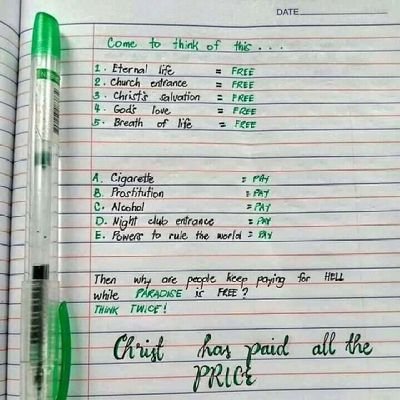 DATE
Come to think of this...
1. Eternal life = FREE
2. Church entrance = FREE
3. Christ's salvation = FREE
4. God's love = FREE
5. Breath of life = FREE
A. Cigarette = PAY
B. Prostitution = PAY
C. Alcohol = PAY
D. Night club entrance = PAY
E. Powers to rule the world = PAY
Then why are people keep paying for HELL
while PARADISE is FREE?
THINK TWICE!
Christ has paid all the
PRICE